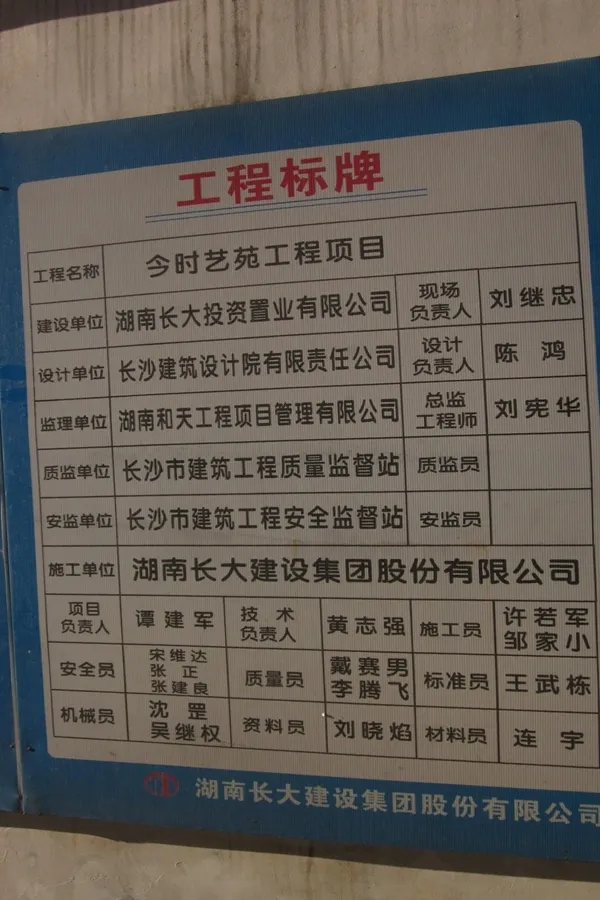 工程标牌
工程名称 今时艺苑工程项目
建设单位 湖南长大投资置业有限公司 现场负责人 刘继忠
设计单位 长沙建筑设计院有限责任公司 设计负责人 陈鸿
监理单位 湖南和天工程项目管理有限公司 总监工程师 刘宪华
质监单位 长沙市建筑工程质量监督站 质监员
安监单位 长沙市建筑工程安全监督站 安监员
施工单位 湖南长大建设集团股份有限公司
项目负责人 谭建军 技术负责人 黄志强 施工员 许若军 邹家小
安全员 宋维达 张正 张建良 质量员 戴赛男 李腾飞 标准员 王武栋
机械员 沈罡 吴继权 资料员 刘晓焰 材料员 连宇
湖南长大建设集团股份有限公司